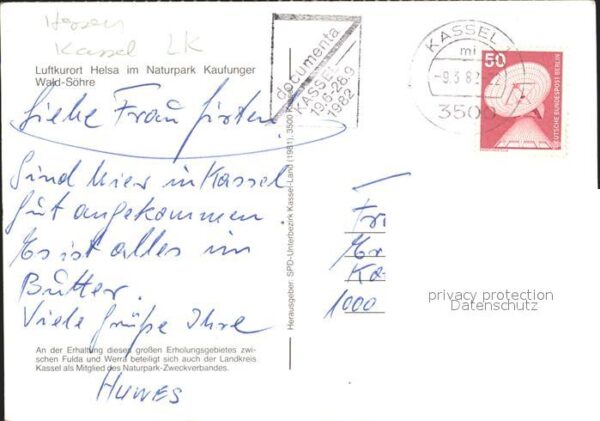 Hessen
Kassel LK
Luftkurort Helsa im Naturpark Kaufunger
Wald-Söhre
Liebe Frau
Sind hier in Kassel
gut angekommen.
Es ist alles im
Butter.
Viele Grüße Ihre
An der Erhaltung dieses großen Erholungsgebietes zwi-
schen Fulda und Werra beteiligt sich auch der Landkreis
Kassel als Mitglied des Naturpark-Zweckverbandes.
HUWES
Herausgeber: SPD-Unterbezirk Kassel-Land (1981), 3500 Kassel
documenta
KASSEL
19.6-28.9
1982
KASSEL
mi
-9.3.82
3500
50
DEUTSCHE BUNDESPOST BERLIN
Fr
Ka
1000
privacy protection
Datenschutz